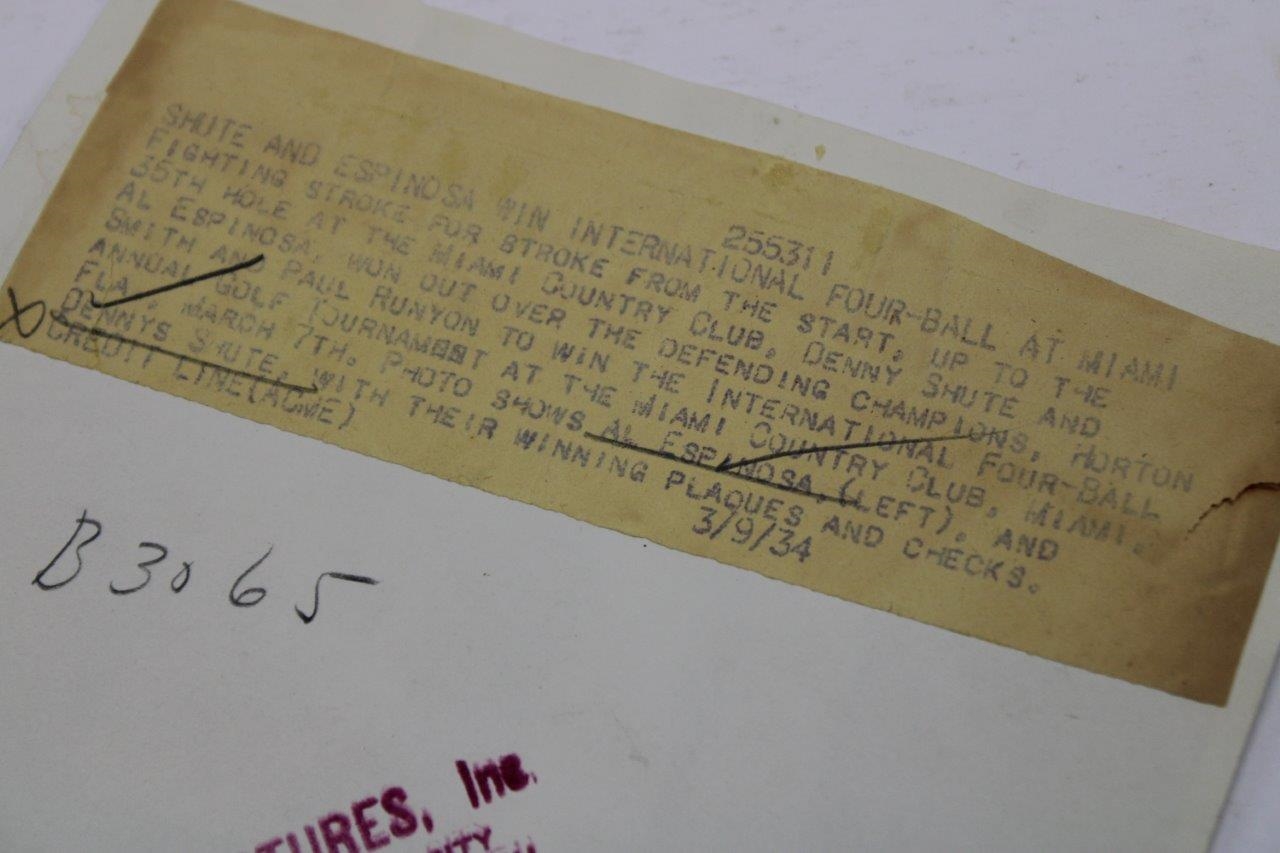 255311
SHUTE AND ESPINOSA WIN INTERNATIONAL FOUR-BALL AT MIAMI
FIGHTING STROKE FOR STROKE FROM THE START, UP TO THE
35TH HOLE AT THE MIAMI COUNTRY CLUB, DENNY SHUTE AND
AL ESPINOSA, WON OUT OVER THE DEFENDING CHAMPIONS, HORTON
SMITH AND PAUL RUNYON TO WIN THE INTERNATIONAL FOUR-BALL
ANNUAL GOLF TOURNAMENT AT THE MIAMI COUNTRY CLUB, MIAMI,
FLA., MARCH 7TH. PHOTO SHOWS AL ESPINOSA,(LEFT), AND
DENNYS SHUTE, WITH THEIR WINNING PLAQUES AND CHECKS.
CREDIT LINE(ACME) 3/9/34
B3065
TURES, Inc.